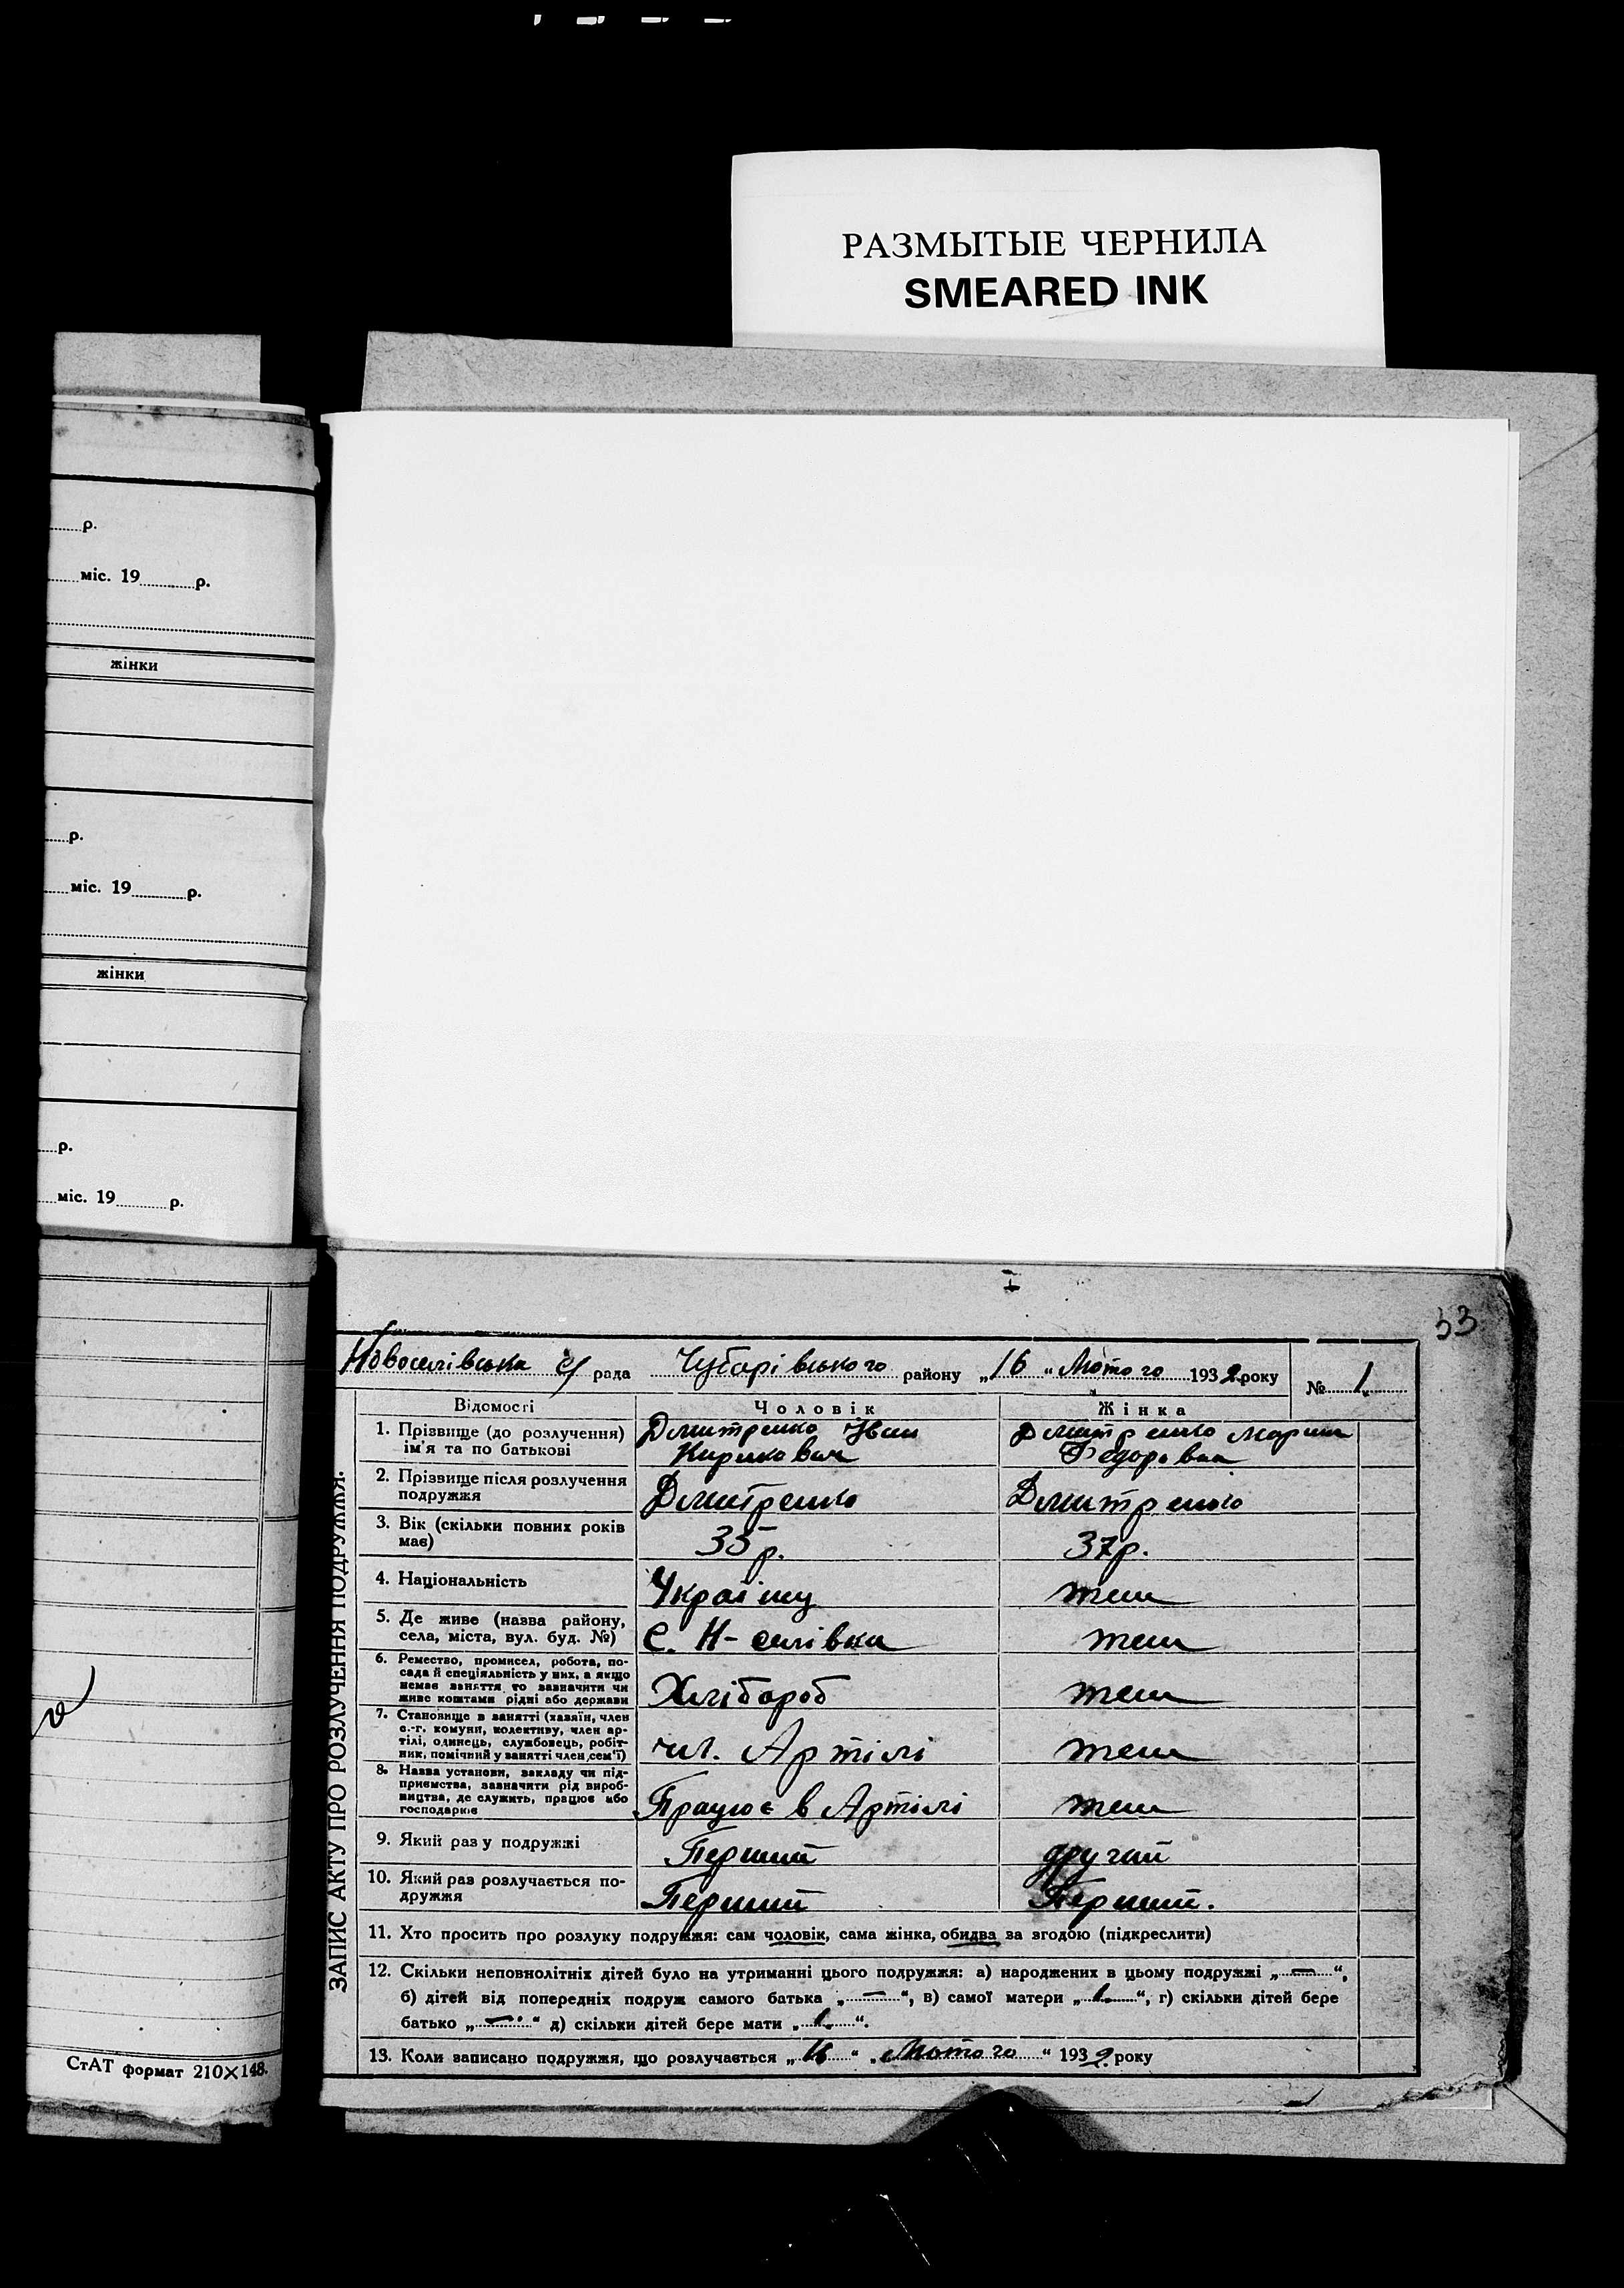 РАЗМЫТЫЕ ЧЕРНИЛА
SMEARED INK
р.
міс. 19 р.
жінки
р.
міс. 19 р.
жінки
р.
міс. 19 р.
СтАТ формат 210×148.
53
Новоселівська с/ рада Чубарівського району „16 “ Лютого 1932 року № 1.
ЗАПИС АКТУ ПРО РОЗЛУЧЕННЯ ПОДРУЖЖЯ.
Відомості Чоловік Жінка
1. Прізвище (до розлучення) Дмитренко Іван Дмитренко Мария
ім'я та по батькові Кирикович Федоровна
2. Прізвище після розлучення
подружжя Дмитренко Дмитренко
3. Вік (скільки повних років
має) 35 р. 37 р.
4. Національність Україну теш
5. Де живе (назва району,
села, міста, вул. буд. №) С. Н-селівка теш
6. Ремество, промисел, робота, по-
сада й спеціяльність у них, а якщо
немає заняття то зазначити чи
живе коштами рідні або держави Хлібороб теш
7. Становище в занятті (хазяїн, член
с.-г. комуни, колективу, член ар-
тілі, одинець, службовець, робіт-
ник, помічний у занятті член сем'ї) чл. Артілі теш
8. Назва установи, закладу чи під-
приємства, зазначити рід вироб-
ництва, де служить, працює або
господарює Працює в Артілі теш
9. Який раз у подружжі Перший другий
10. Який раз розлучається по-
дружжя Перший Перший.
11. Хто просить про розлуку подружжя: сам чоловік, сама жінка, обидва за згодою (підкреслити)
12. Скільки неповнолітніх дітей було на утриманні цього подружжя: а) народжених в цьому подружжі „ — “,
б) дітей від попередніх подруж самого батька „ — “, в) самої матери „ 1 “, г) скільки дітей бере
батько „ — “ д) скільки дітей бере мати „ 1. “.
13. Коли записано подружжя, що розлучається „ “ „ Лютого “ 1932 року